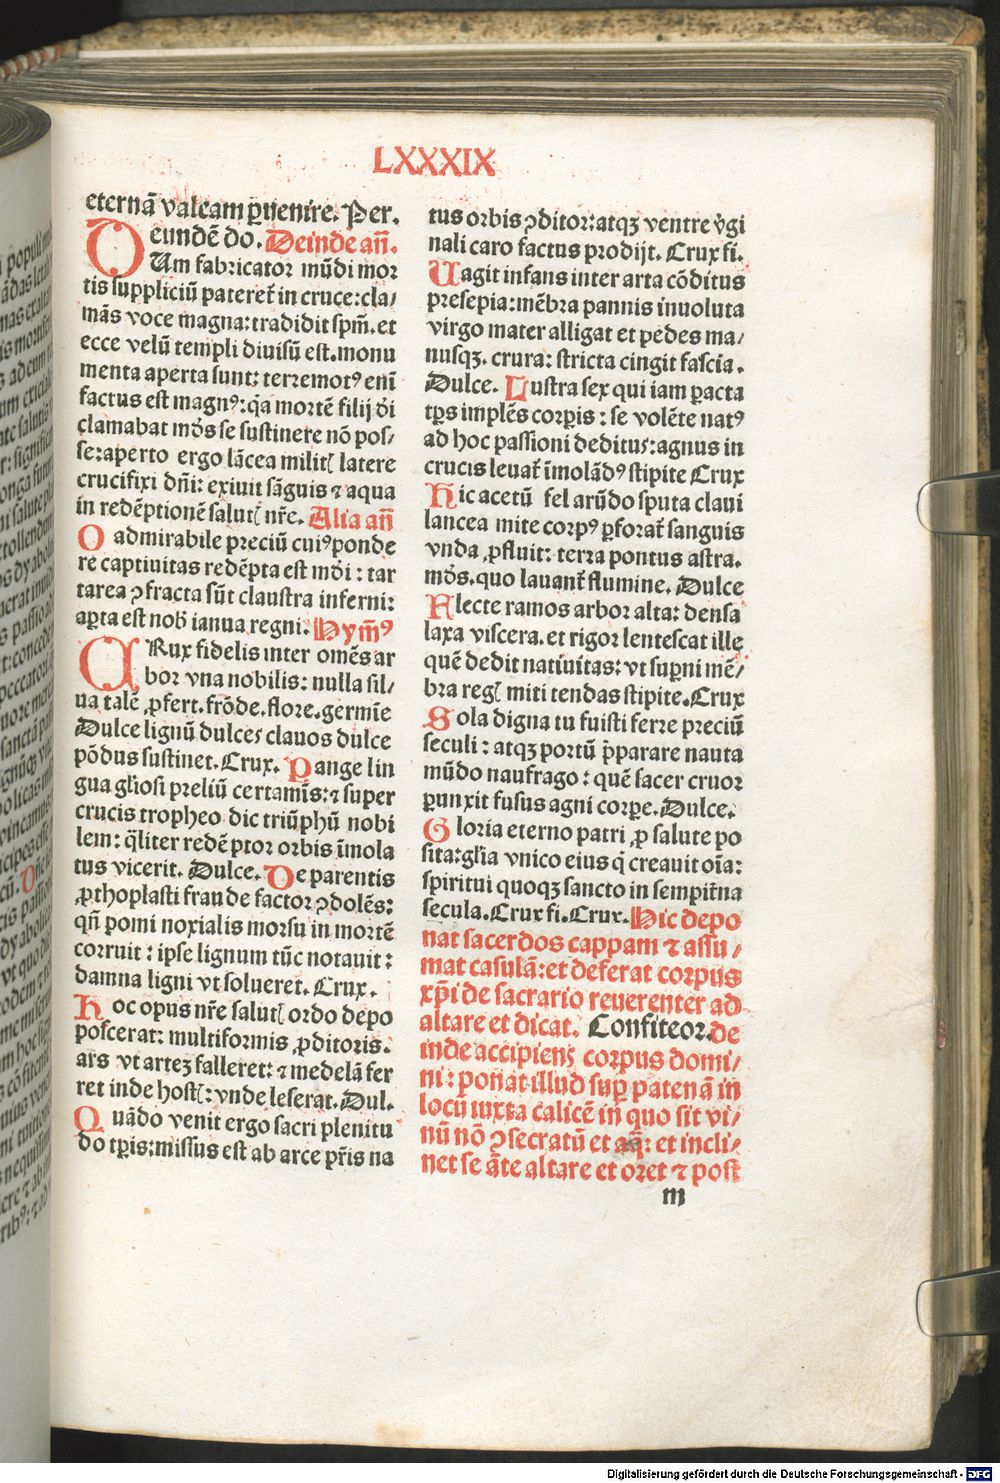 LXXXIX
eternā valeam ꝑuenire. Per.
eundē do. Deinde añ.
DUm fabricator mūdi mor
tis suppliciū pateret̄ in cruce: cla/
mās voce magna: tradidit spm̄. et
ecce velū templi divisū est. monu
menta aperta sunt: terremotꝰ eni
factus est magnꝰ: q̄a mortē filij d̄i
clamabat mūs se sustinere nō pos/
se: aperto ergo lācea militꝭ latere
crucifixi dñi: exiuit sāguis ⁊ aqua
in redēptionē salutꝭ nr̄e. Alia añ
O admirabile preciū cuiꝰ ponde
re captiuitas redēpta est mūi: tar
tarea ꝯfracta sūt claustra inferni:
aꝑta est nob̄ ianua regni. Hym̄ꝰ
CRux fidelis inter omēs ar
bor vna nobilis: nulla sil/
ua talē ꝓfert. frōde. flore. germīe
Dulce lignū dulces clauos dulce
pōdus sustinet. Crux. Pange lin
gua gl̄iosi preliū certamīs: ⁊ super
crucis tropheo dic triūphū nobi
lem: q̄liter redēptor orbis īmola
tus vicerit. Dulce. De parentis
ꝓthoplasti fraude factor ꝯdolēs:
qñ pomi noxialis morsu in mortē
corruit: ipse lignum tūc notauit:
damna ligni vt solueret. Crux.
Hoc opus nr̄e salutꝭ ordo depo
poscerat: multiformis ꝓditoris.
ars vt artez falleret: ⁊ medelā fer
ret inde hostꝭ: vnde leserat. Dul.
Quādo venit ergo sacri plenitu
do tꝑis: missus est ab arce pr̄is na
tus orbis ꝯditor: atqꝫ ventre v̄gi
nali caro factus prodijt. Crux fi.
Uagit infans inter arta cōditus
presepia: mēbra pannis inuoluta
virgo mater alligat et pedes ma/
nusqꝫ. crura: stricta cingit fascia.
Dulce. Lustra sex qui iam ꝑacta
tp̄s implēs corꝑis: se volēte natꝰ
ad hoc passioni deditus: agnus in
crucis leuat̄ īmolādꝰ stipite Crux
Hic acetū fel arūdo sputa claui
lancea mite corpꝰ ꝑforat̄ sanguis
vnda ꝓfluit: terra pontus astra.
mūs. quo lauant̄ flumine. Dulce
Flecte ramos arbor alta: densa
laxa viscera. et rigor lentescat ille
quē dedit natiuitas: vt suꝑni mē/
bra regꝭ miti tendas stipite. Crux
Sola digna tu fuisti ferre preciū
seculi: atqꝫ portū p̄parare nauta
mūdo naufrago: quē sacer cruor
ꝑunxit fusus agni corꝑe. Dulce.
Gloria eterno patri ꝓ salute po
sita: gl̄ia vnico eius q̄ creauit oīa:
spiritui quoqꝫ sancto in sempit̄na
secula. Crux fi. Crux. Hic depo
nat sacerdos cappam ⁊ assu/
mat casulā: et deferat corpus
xp̄i de sacrario reuerenter ad
altare et dicat. Confiteor. de
inde accipiens corpus domi/
ni: ponat illud suꝑ patenā in
locū iuxta calicē in quo sit vi/
nū nō ꝯsecratū et aq̄: et incli/
net se āte altare et oret ⁊ post
m
Digitalisierung gefördert durch die Deutsche Forschungsgemeinschaft - DFG